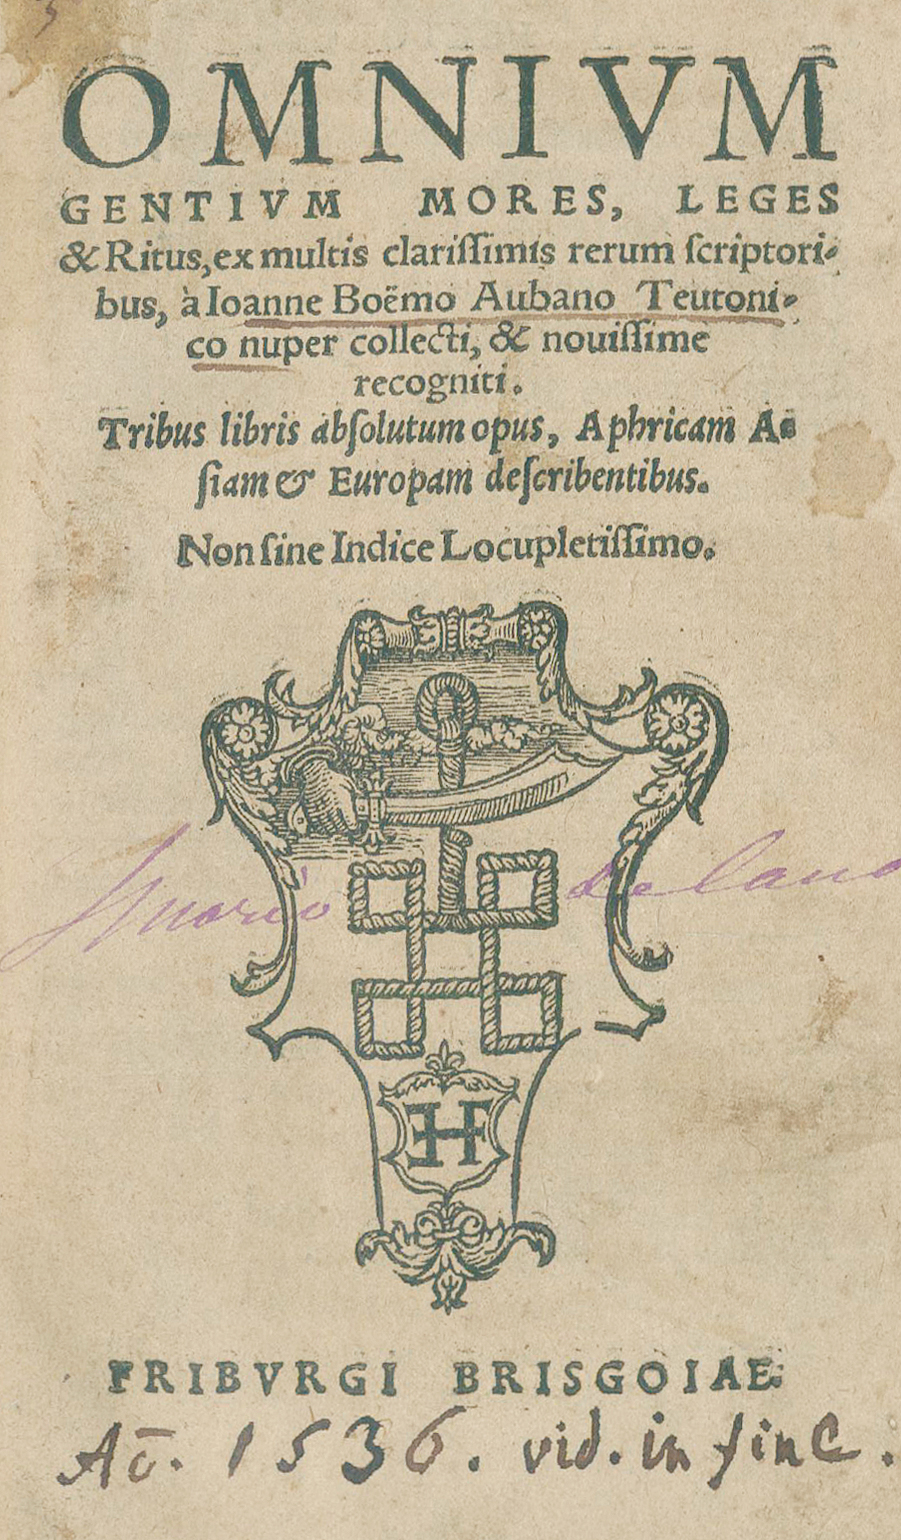 OMNIVM
GENTIVM MORES, LEGES
& Ritus, ex multis clariſſimis rerum ſcriptori-
bus, à Ioanne Boëmo Aubano Teutoni-
co nuper collecti, & nouiſſime
recogniti.
Tribus libris abſolutum opus, Aphricam A-
ſiam & Europam deſcribentibus.
Non ſine Indice Locupletiſſimo.
Mario de Lano
FH
FRIBVRGI BRISGOIAE
Aō. 1536. vid. in fine.